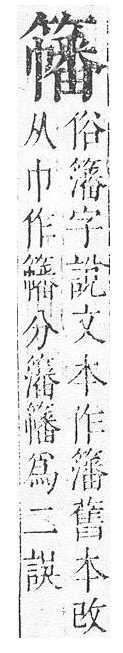 ⿱竹幡
俗籓字說文本作籓舊本改
从巾作⿱竹幡分籓⿱竹幡爲二誤